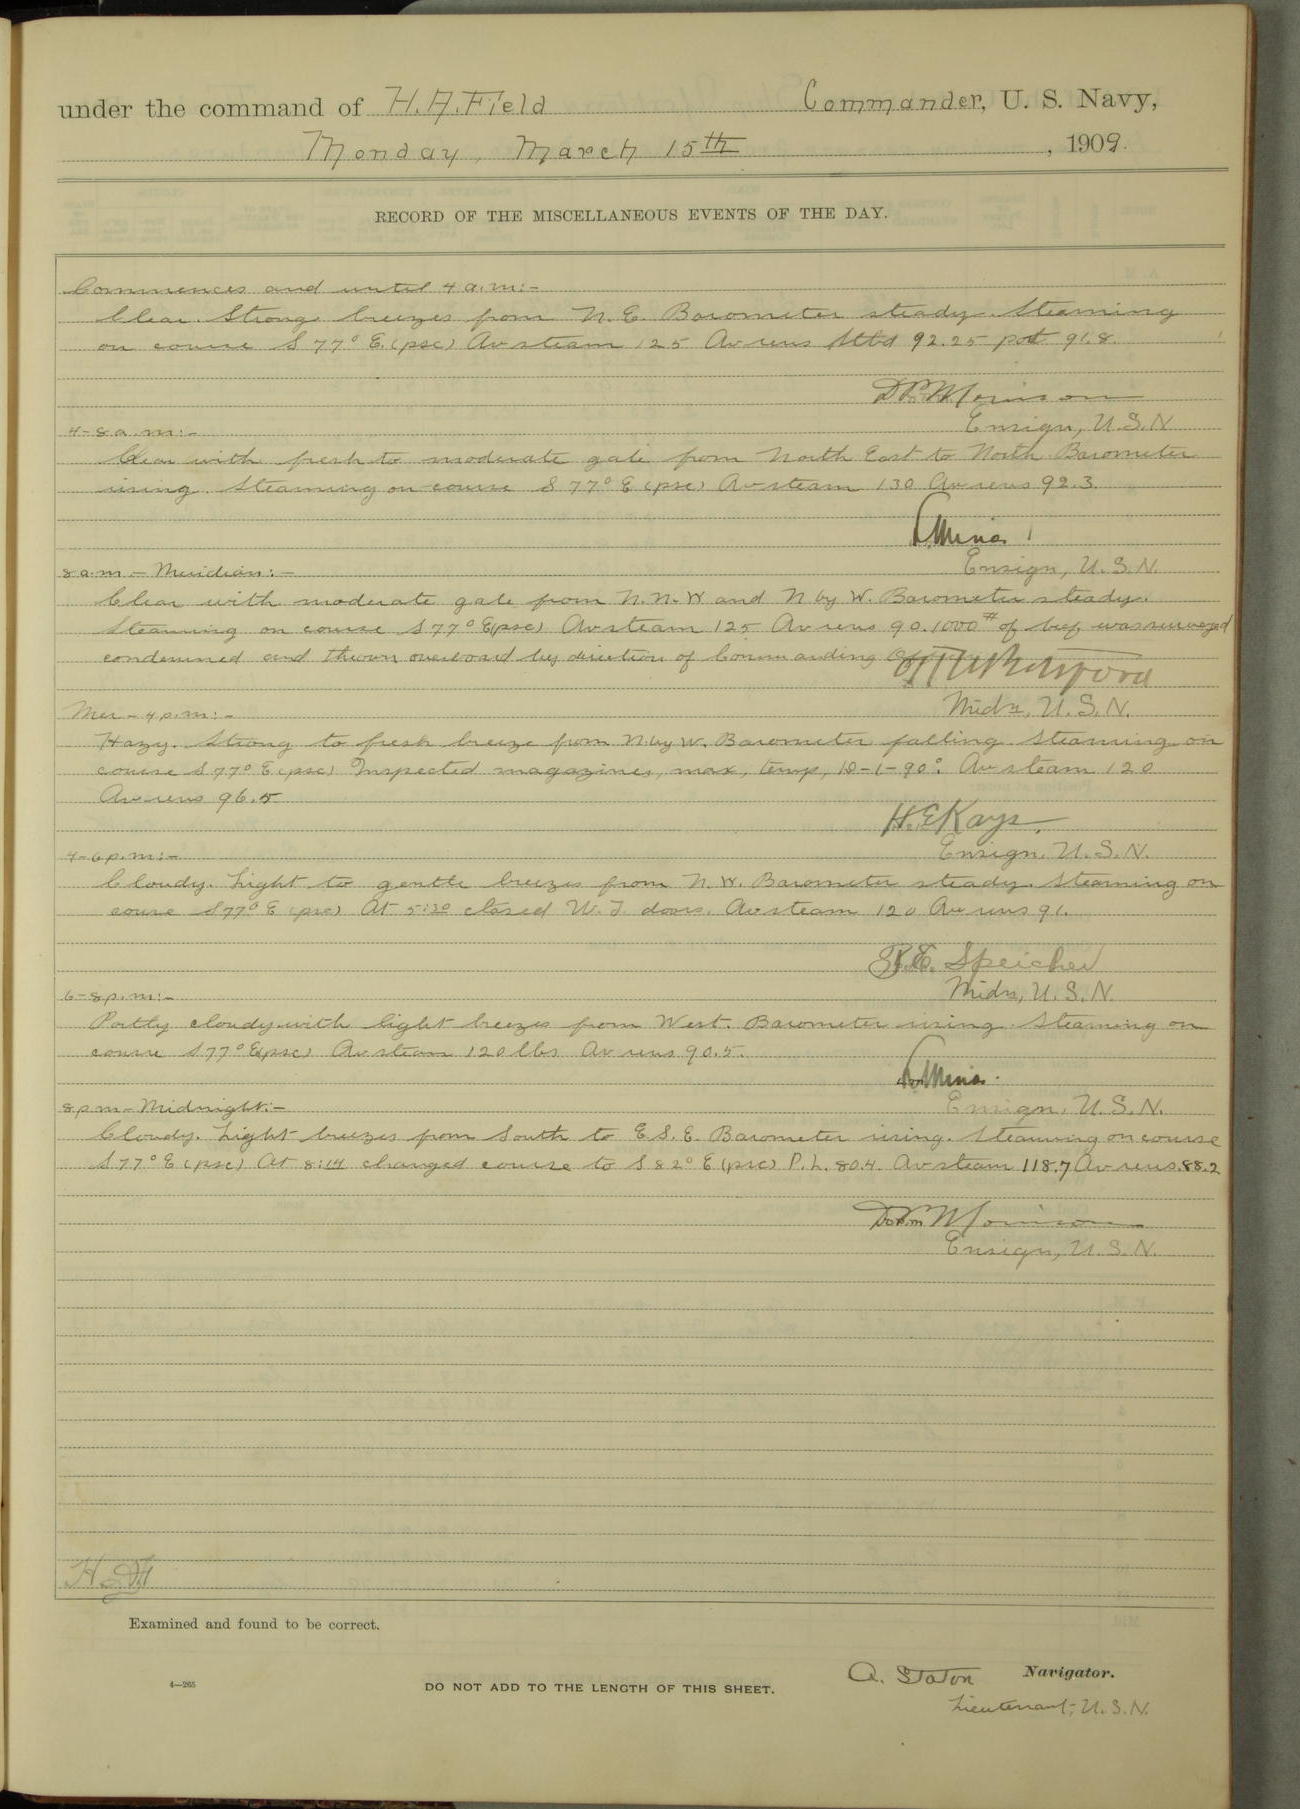 under the command of H. A. Field Commander, U. S. Navy,
Monday, March 15th, 1909.
RECORD OF THE MISCELLANEOUS EVENTS OF THE DAY.
Commences and until 4 a.m:-
Clear. Strong breezes from N. E. Barometer steady. Steaming
on course S 77° E. (psc) Av steam 125 Av revs Stbd 92.25 port 91.8.
Morrison
Ensign, U.S.N.
4-8 a.m:-
Clear with fresh to moderate gale from North East to North. Barometer
rising. Steaming on course S 77° E (psc) Av steam 130 Av revs 92.3.
Minor
Ensign, U.S.N.
8 a.m.- Meridian:-
Clear with moderate gale from N.N.W and N by W. Barometer steady.
Steaming on course S 77° E (psc) Av steam 125 Av revs 90. 1000# of beef was surveyed
condemned and thrown overboard by direction of Commanding
Midn, U.S.N.
Mer-4 p.m:-
Hazy. Strong to fresh breeze from N by W. Barometer falling. Steaming on
course S 77° E (psc) Inspected magazines, max, temp, 10-1-90°. Av steam 120
Av revs 96.5
H.E. Kays.
Ensign, U.S.N.
4-6 p.m:-
Cloudy. Light to gentle breezes from N.W. Barometer steady. Steaming on
course S 77° E (psc) At 5:30 closed W.T. doors. Av steam 120 Av revs 91.
R.E. Speicher
Midn, U.S.N.
6-8 p.m:-
Partly cloudy with light breezes from West. Barometer rising. Steaming on
course S 77° E (psc) Av steam 120 lbs Av revs 90.5.
Minor.
Ensign, U.S.N.
8 p m- Midnight:-
Cloudy. Light breezes from South to E.S.E. Barometer rising. Steaming on course
S 77° E (psc) At 8:14 changed course to S 82° E (psc) P.L. 80.4. Av steam 118.7 Av revs. 88.2
Morrison
Ensign, U.S.N.
Examined and found to be correct.
A. Staton Navigator.
4—265
DO NOT ADD TO THE LENGTH OF THIS SHEET.
Lieutenant, U.S.N.